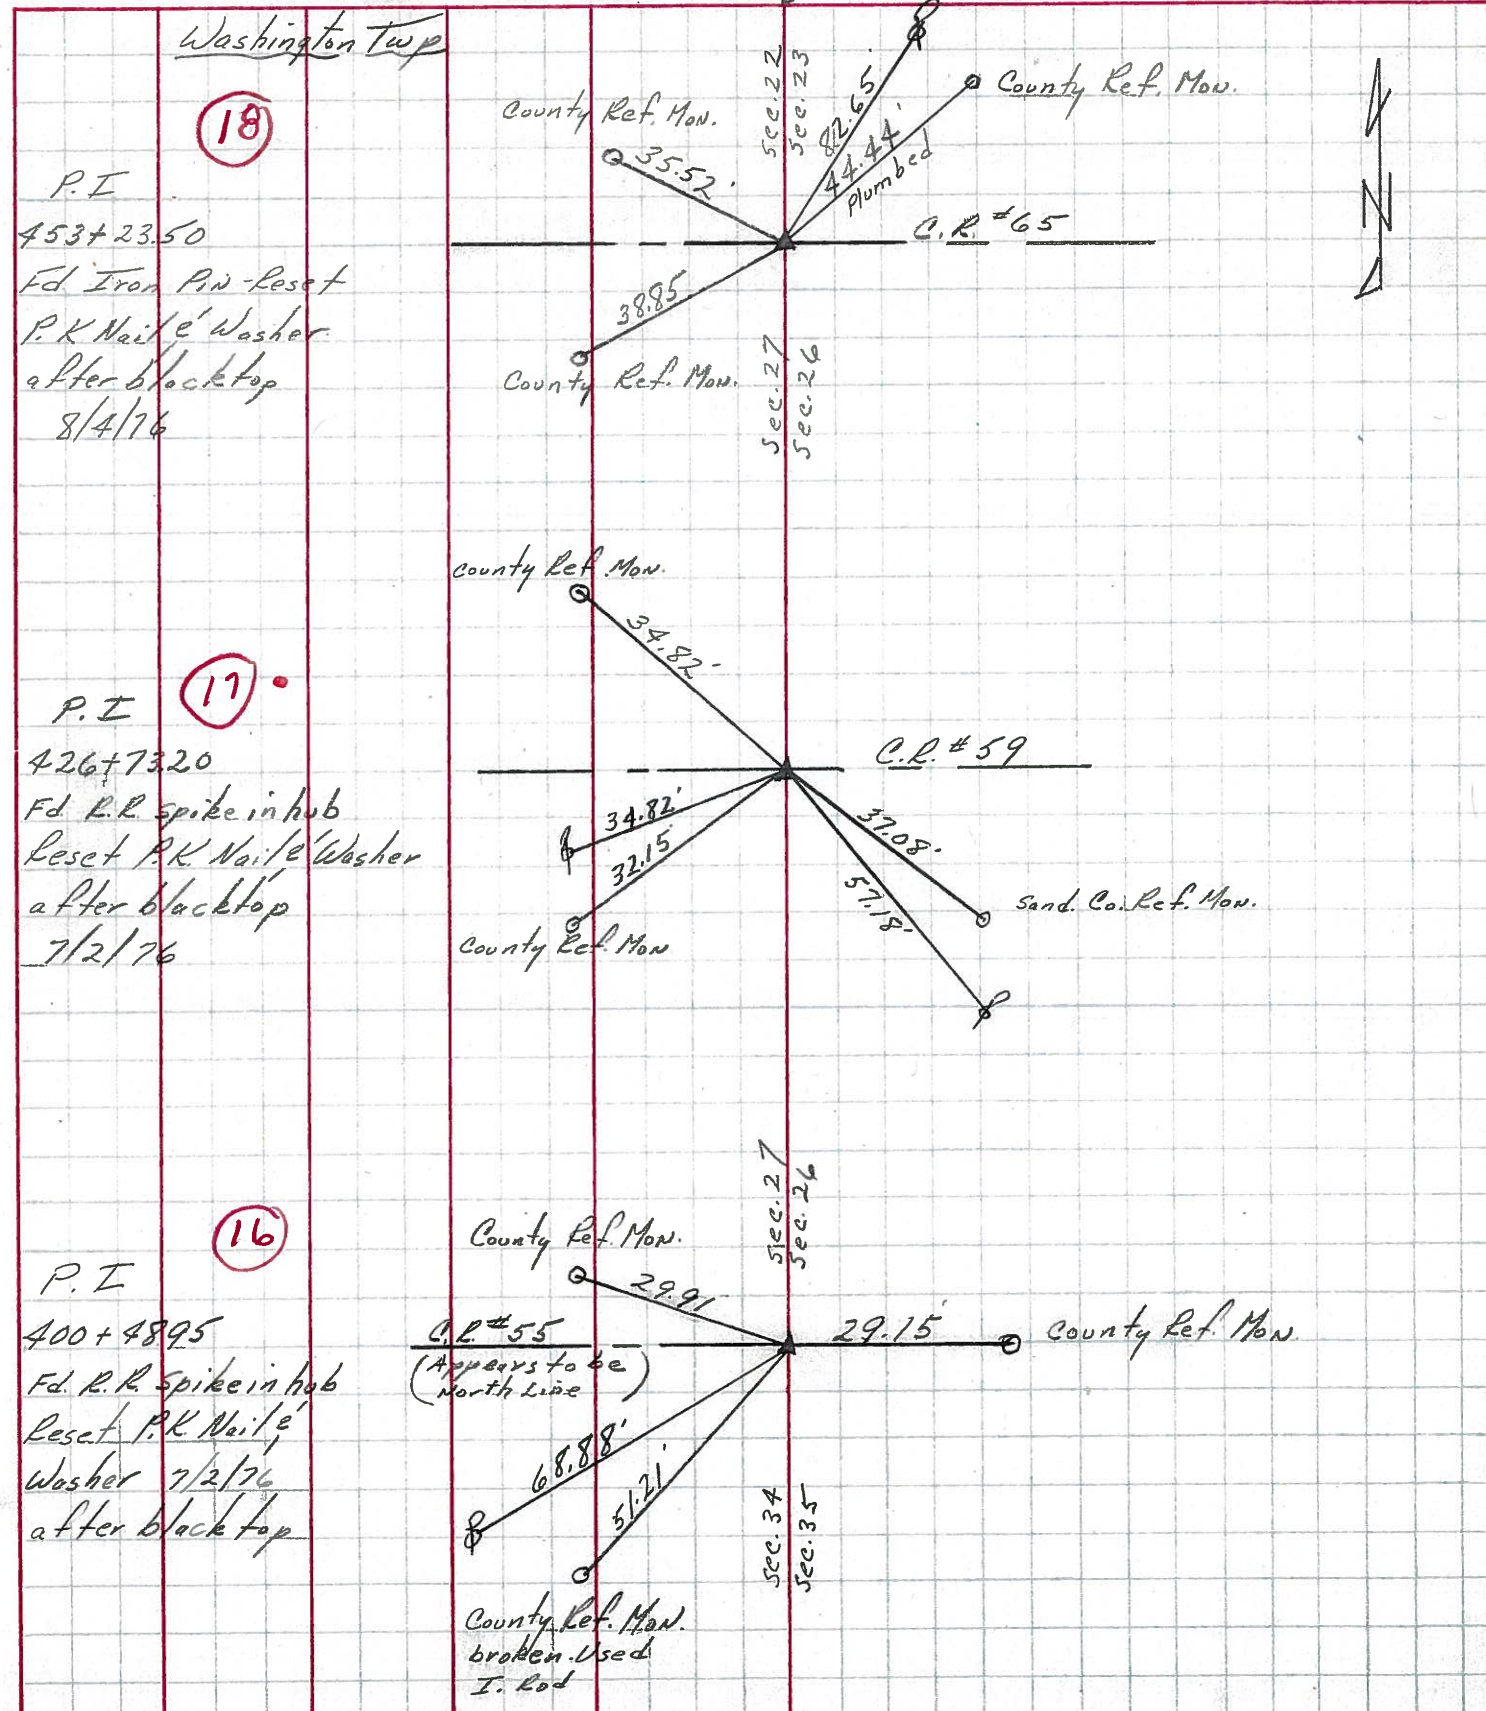 Washington Twp
18
P.I
453+23.50
Fd Iron Pin-Reset
P.K Nail é Washer
after blacktop
8/4/76
County Ref. Mon.
35.52'
Sec. 22
Sec. 23
82.65'
44.44'
Plumbed
County Ref. Mon.
N
C.R. #65
38.85
County Ref. Mon.
Sec. 27
Sec. 26
County Ref. Mon.
34.82'
17
P.I
426+73.20
Fd R.R. spike in hub
Reset P.K Nail é Washer
after blacktop
7/2/76
C.R. #59
34.82'
32.15
County Ref. Mon
37.08'
57.18'
Sand. Co. Ref. Mon.
Sec. 27
Sec. 26
16
P.I
400+48.95
Fd. R.R. spike in hub
Reset P.K Nail é
Washer 7/2/76
after blacktop
County Ref. Mon.
29.91
C.R. #55
(Appears to be
North Line)
29.15'
County Ref. Mon.
68.88'
51.21'
Sec. 34
Sec. 35
County Ref. Mon.
broken. Used
I. Rod